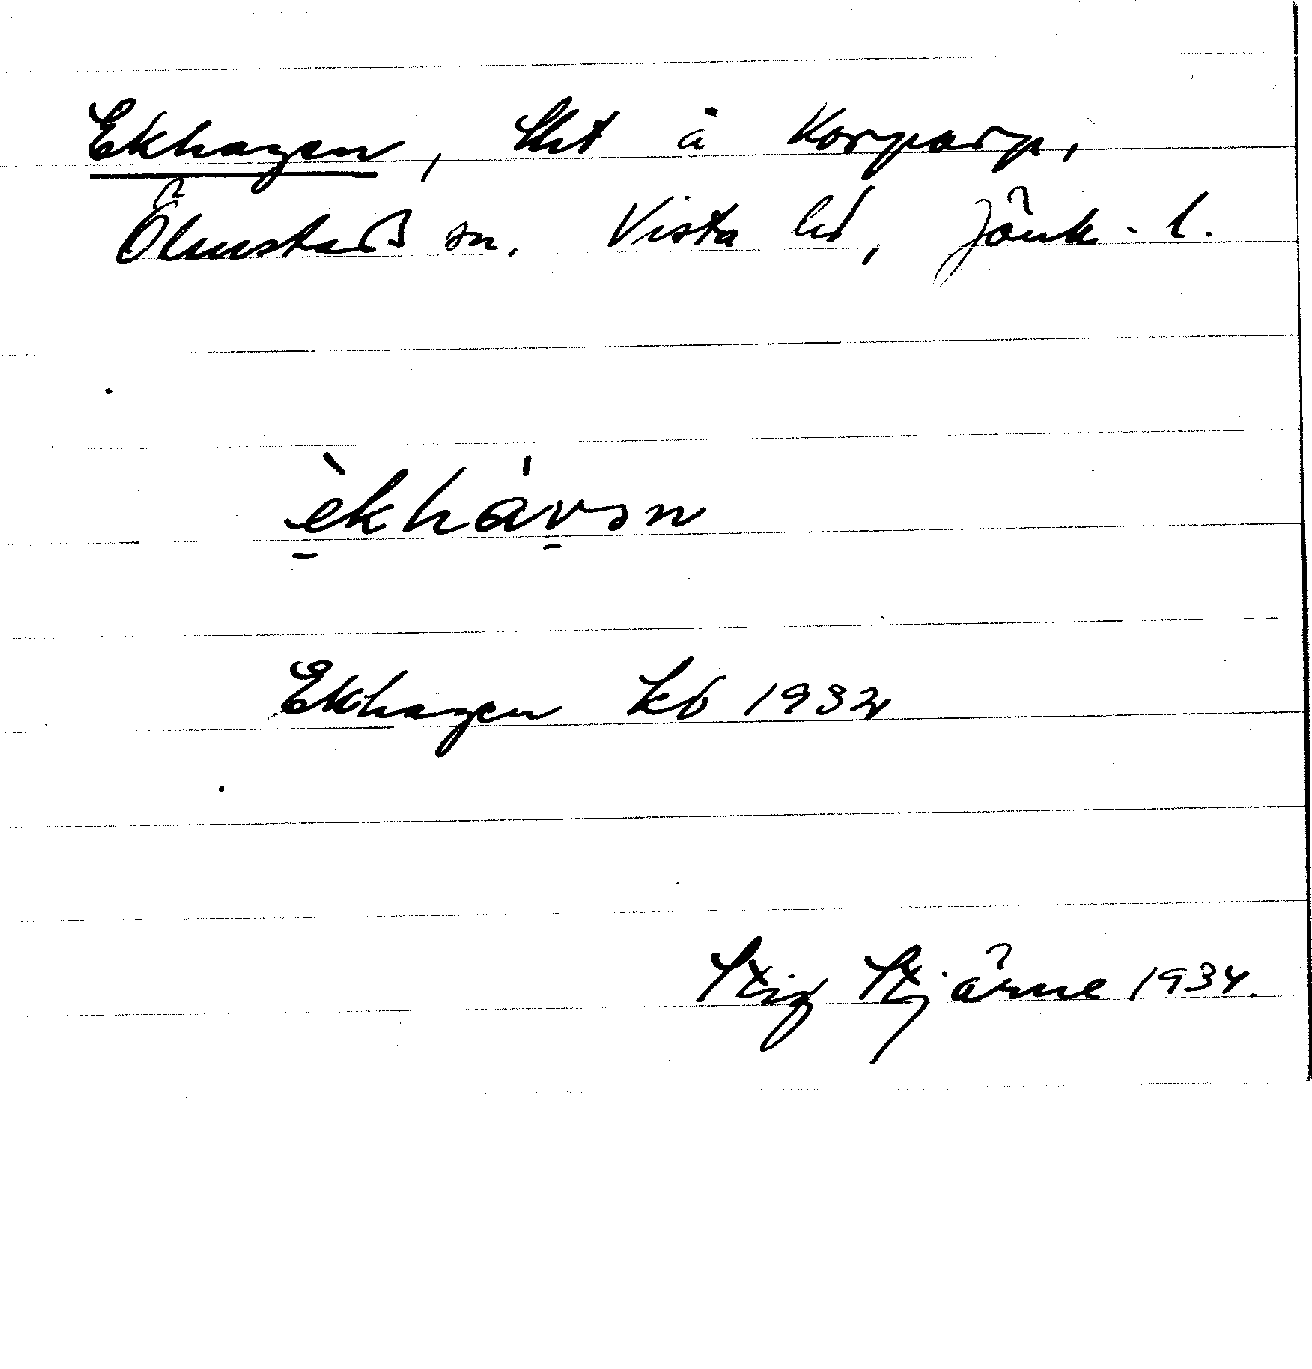 Ekhagen, lht å Korparp,
Ölmstads sn. Vista hd, Jönk. l.
èkhávən
Ekhagen kb 1932
Stig Stjärne 1934.